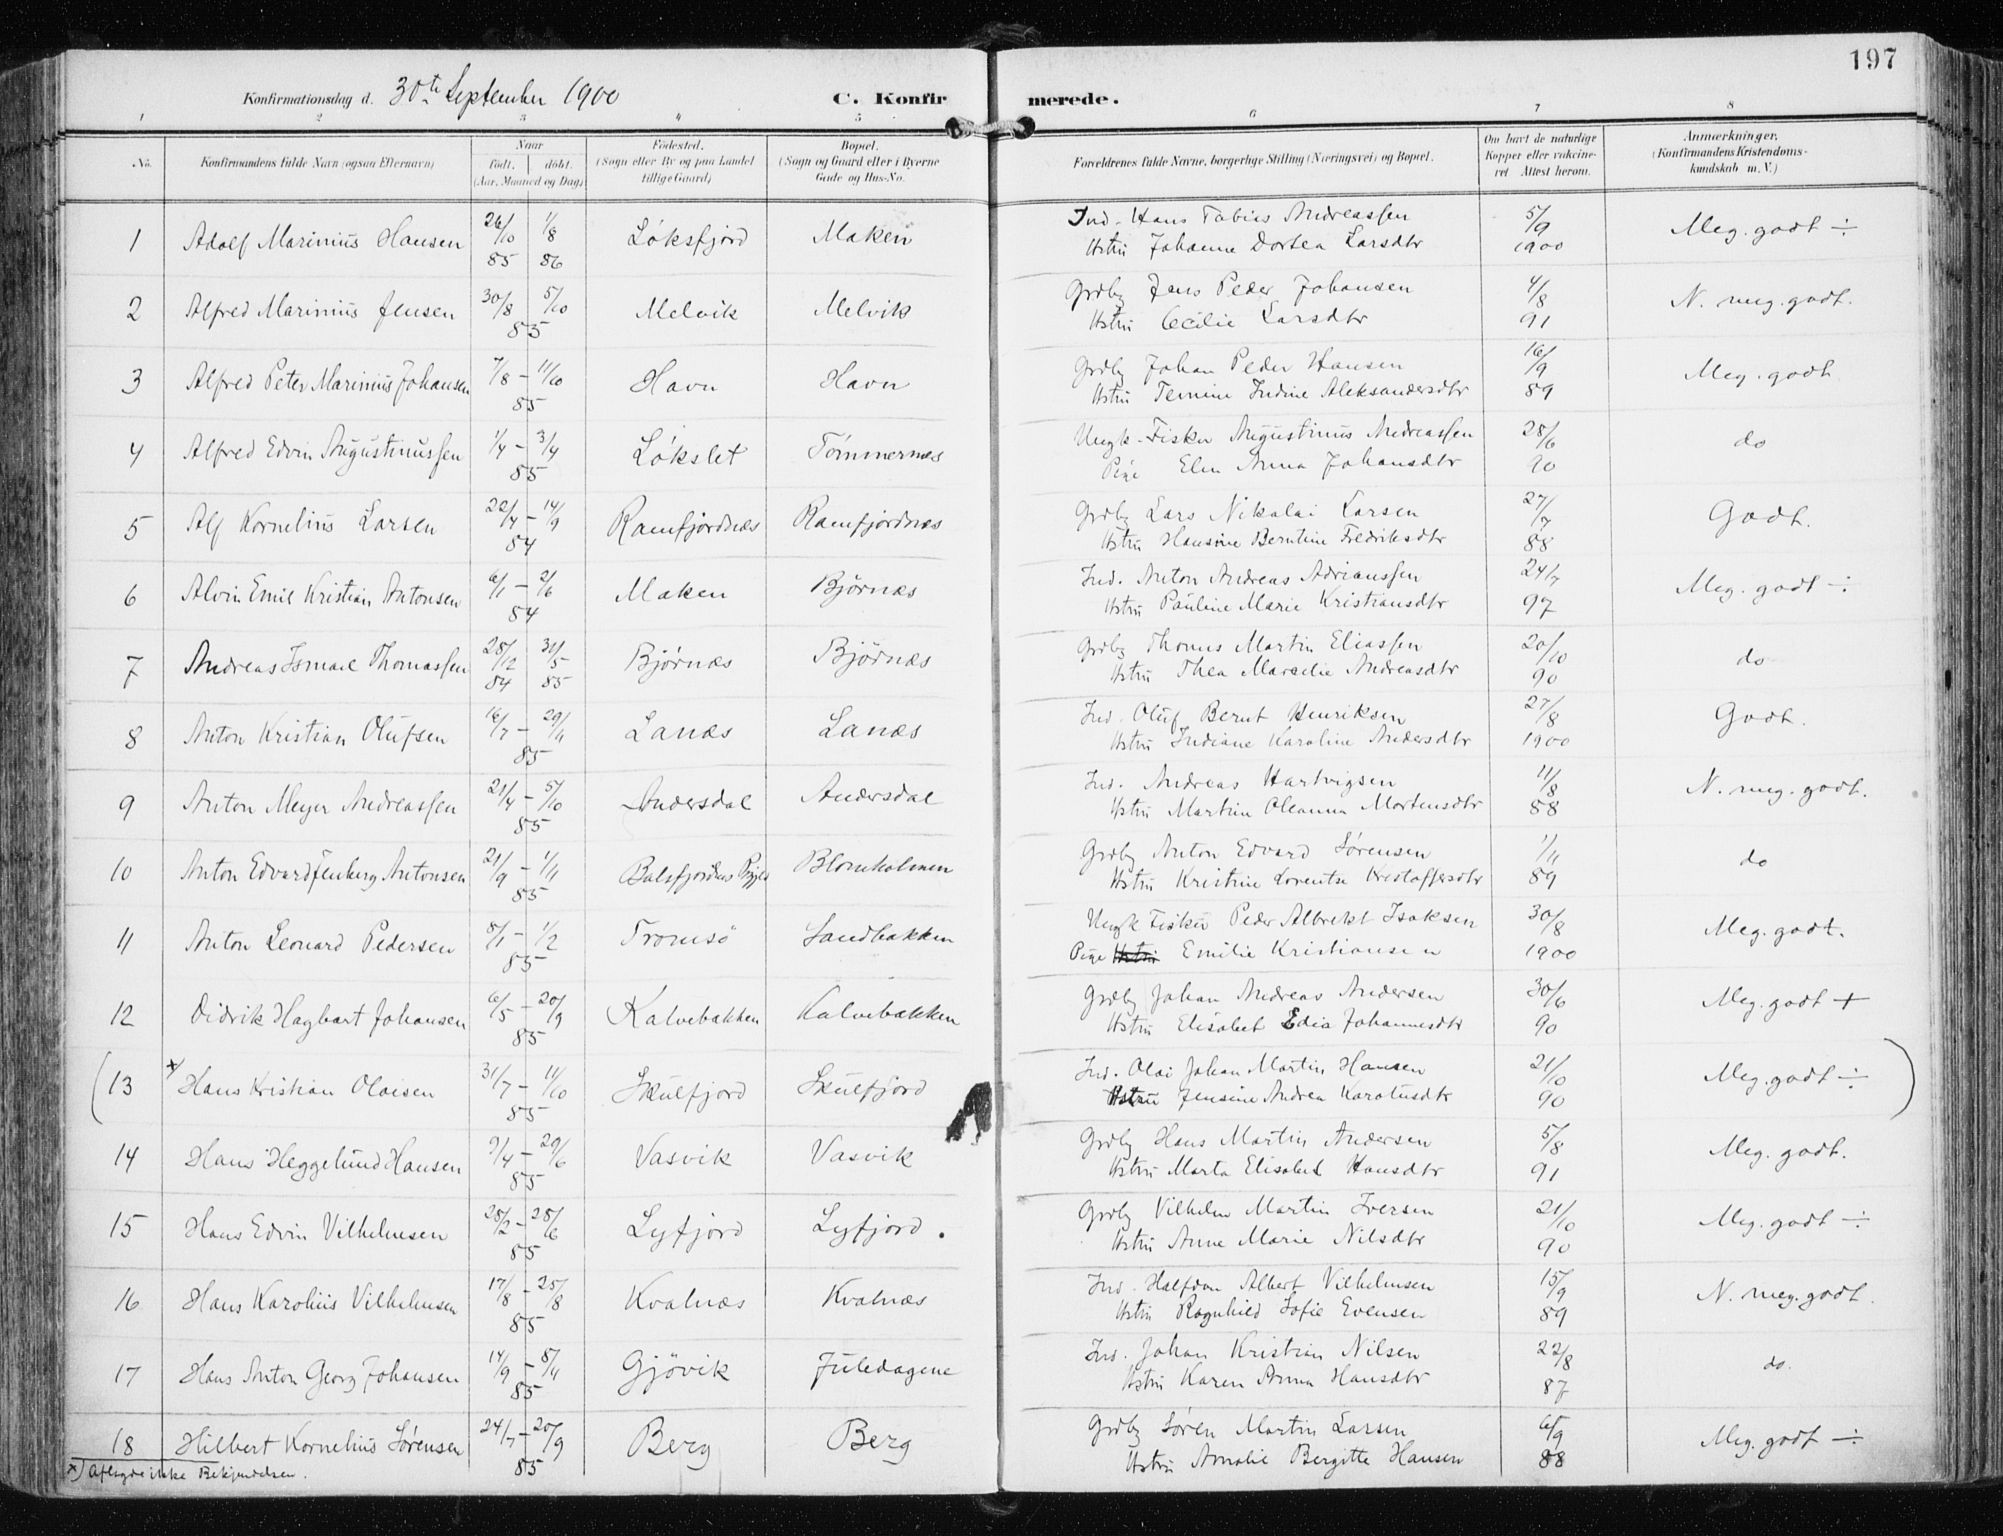 197
Konfirmationsdag d. 30te September 1900 C. Konfirmerede.
1 2 3 4 5 6 7 8
No. Konfirmandens fulde Navn (ogsaa Efternavn) Naar født, døbt. (Aar, Maaned og Dag) Fødested. (Sogn eller By og paa Landet tillige Gaard) Bopæl. (Sogn og Gaard eller i Byerne Gade og Hus-No. Forældrenes fulde Navne, borgerlige Stilling (Næringsvei) og Bopæl. Om havt de naturlige Kopper eller vakcineret Attest herom. Anmærkninger. (Konfirmandens Kristendomskundskab m. V.)
1 Adolf Marinius Hansen 26/10 85 1/8 86 Løksfjord Maken Ind. Hans Tobias Andreassen 5/9 1900 Meg. godt ÷
Hstru Johanne Dortea Larsdtr
2 Alfred Marinius Jensen 30/8 5/10 85 Melvik Melvik Grdby Jens Peder Johansen 4/8 91 N. meg. godt.
Hstru Cecilie Larsdtr
3 Alfred Peter Marinius Johansen 7/8 - 11/10 85 Havn Havn Grdby Johan Peder Hansen 16/9 89 Meg. godt
Hstru Indine Aleksandersdtr
4 Alfred Edvin Augustinussen 1/4 - 3/4 85 Løkslet Tømmernes Ungk. Fisker Augustinus Andreassen 28/6 90 do
Pige Elen Anna Johansdtr
5 Alf Kornelius Larsen 22/4 - 14/9 84 Ramfjordnæs Ramfjordnæs Grdby Lars Nikolai Larsen 27/7 88 Godt.
Hstru Hansine Berntine Fredriksdtr
6 Alvin Emil Kristian Antonsen 6/1 - 2/6 84 Maken Bjørnæs Ind. Anton Andreas Adrianssen 24/7 97 Meg. godt ÷
Hstru Pauline Marie Kristiansdtr
7 Andreas Ismael Thomassen 28/12 84 31/5 85 Bjørnæs Bjørnæs Grdby Thomas Martin Eliassen 20/10 90 do
Hstru Thea Marselie Andreasdtr
8 Anton Kristian Olufsen 16/7 - 29/11 85 Lanæs Lanæs Ind. Oluf Bernt Henriksen 27/8 1900 Godt.
Hstru Indiane Karoline Andersdtr
9 Anton Meyer Andreassen 21/4 - 5/10 85 Andersdal Andersdal Ind. Andreas Hartvigsen 11/8 88 N. meg. godt.
Hstru Martine Oleanna Mortensdtr
10 Anton Edvard Antonsen 21/9 - 1/11 85 Balsfjordens Blomholmen Grdby Anton Edvard Sørensen 1/11 89 do
Hstru Kristine Lorentse Kristoffersdtr
11 Anton Leonard Pedersen 8/1 - 1/2 85 Tromsö Sandbakken Ungk Fisker Peder Albrekt Isaksen 30/8 1900 Meg. godt.
Pige Hstru Emilie Kristiansen
12 Didrik Hagbart Johansen 6/5 - 20/9 85 Kalvebakken Kalvebakken Grdby Johan Andreas Andersen 30/6 90 Meg. godt +
Hstru Elisabet Edia Johannesdtr
(13 x Hans Kristian Olaisen 31/7 - 11/10 85 Skulfjord Skulfjord Ind. Olai Johan Martin Hansen 21/10 90 Meg. godt ÷ )
Hstru Jensine Andrea Karolusdtr
14 Hans Heggelund Hansen 9/4 - 29/6 85 Vasvik Vasvik Grdby Hans Martin Andersen 5/8 91 Meg. godt.
Hstru Marta Elisabet Hansdtr
15 Hans Edvin Vilhelmsen 28/2 - 28/6 85 Lyfjord Lyfjord. Grdby Vilhelm Martin Iversen 21/10 90 Meg. godt ÷
Hstru Anne Marie Nilsdtr
16 Hans Karolius Vilhelmsen 17/8 - 25/8 85 Kvalnæs Kvalnæs Ind. Halfdan Albert Vilhelmsen 15/9 89 N. meg. godt.
Hstru Ragnhild Sofie Evensen
17 Hans Anton Georg Johansen 14/9 - 8/11 85 Gjøvik Juledagene Ind. Johan Kristian Nilsen 22/8 87 do.
Hstru Karen Anna Hansdtr
18 Hilbert Kornelius Sørensen 24/7 - 20/9 85 Berg Berg Grdby Søren Martin Larsen 6/9 88 Meg. godt ÷
Hstru Amalie Bergitte Hansen
x) Aflagde ikke Bekjendelsen.